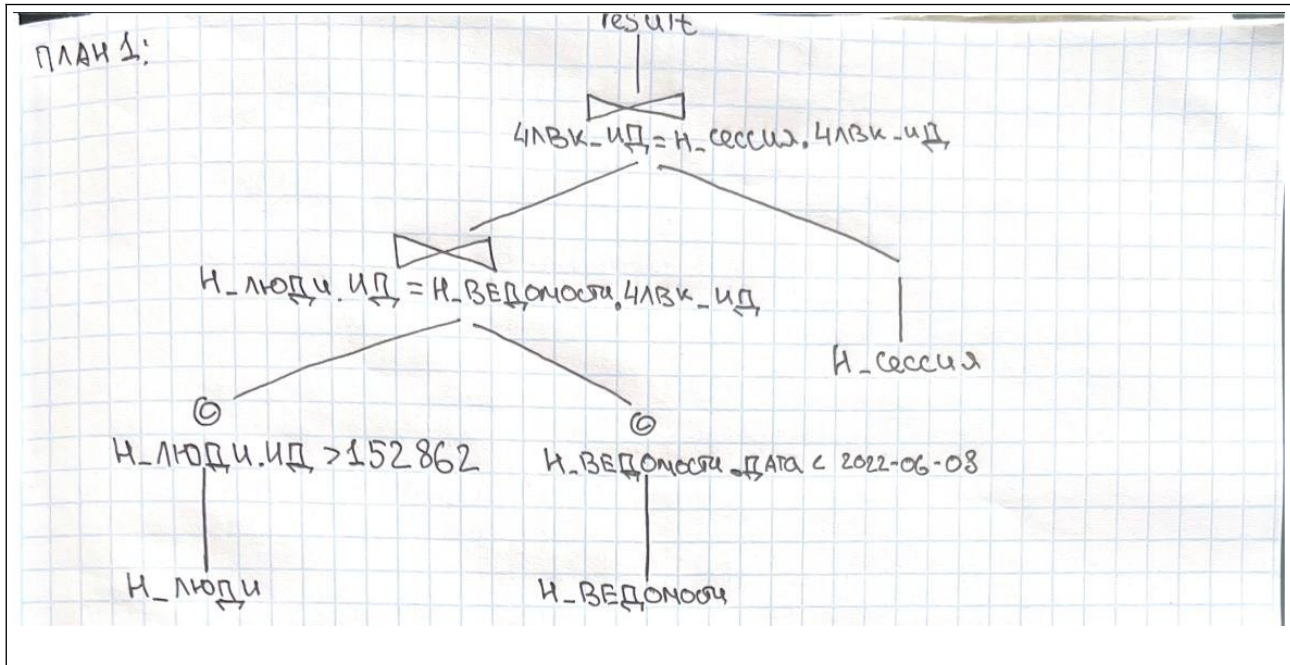 result
ПЛАН 1:
ЧЛВК_ИД = Н_сессия.ЧЛВК_ИД
Н_ЛЮДИ.ИД = Н_ВЕДОМОСТИ.ЧЛВК_ИД
Н_сессия
Н_ЛЮДИ.ИД >152862
Н_ВЕДОМОСТИ.ДАТА < 2022-06-08
Н_ЛЮДИ
Н_ВЕДОМОСТИ